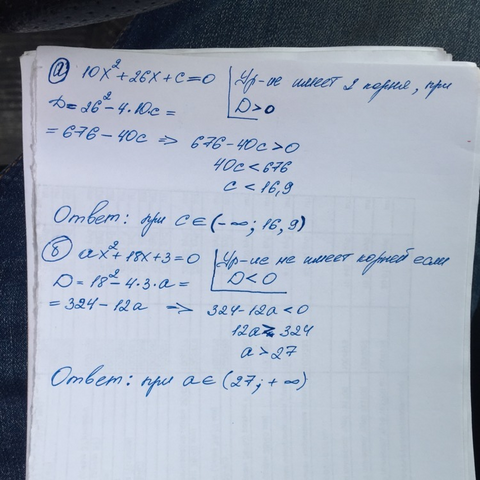 а) 10x² + 26x + c = 0 | Ур-ие имеет 2 корня, при
D = 26² - 4·10c = | D > 0
= 676 - 40c ⇒ 676 - 40c > 0
40c < 676
c < 16,9
Ответ: при c ∈ (-∞; 16,9)
б) ax² + 18x + 3 = 0 | Ур-ие не имеет корней если
D = 18² - 4·3·a = | D < 0
= 324 - 12a ⇒ 324 - 12a < 0
12a > 324
a > 27
Ответ: при a ∈ (27; +∞)